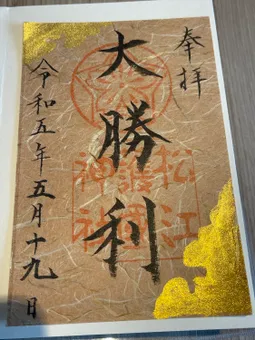 奉拝
大勝利
松江
護國
神社
令和五年五月十九日